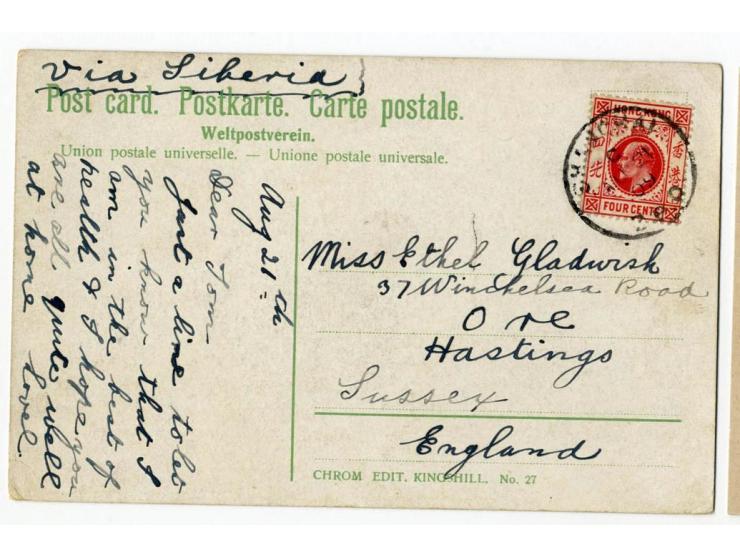 Via Siberia
Post card. Postkarte. Carte postale.
Weltpostverein.
Union postale universelle. — Unione postale universale.
Aug 21 = th
Dear Tom
Just a line to let
you know that I
am in the best of
health & I hope you
are all quite well
at home love
HONG KONG
FOUR CENTS
SHANGHAI
Miss Ethel Gladwish
37 Winchelsea Road
Ore
Hastings
Sussex
England
CHROM EDIT. KINGSHILL. No. 27